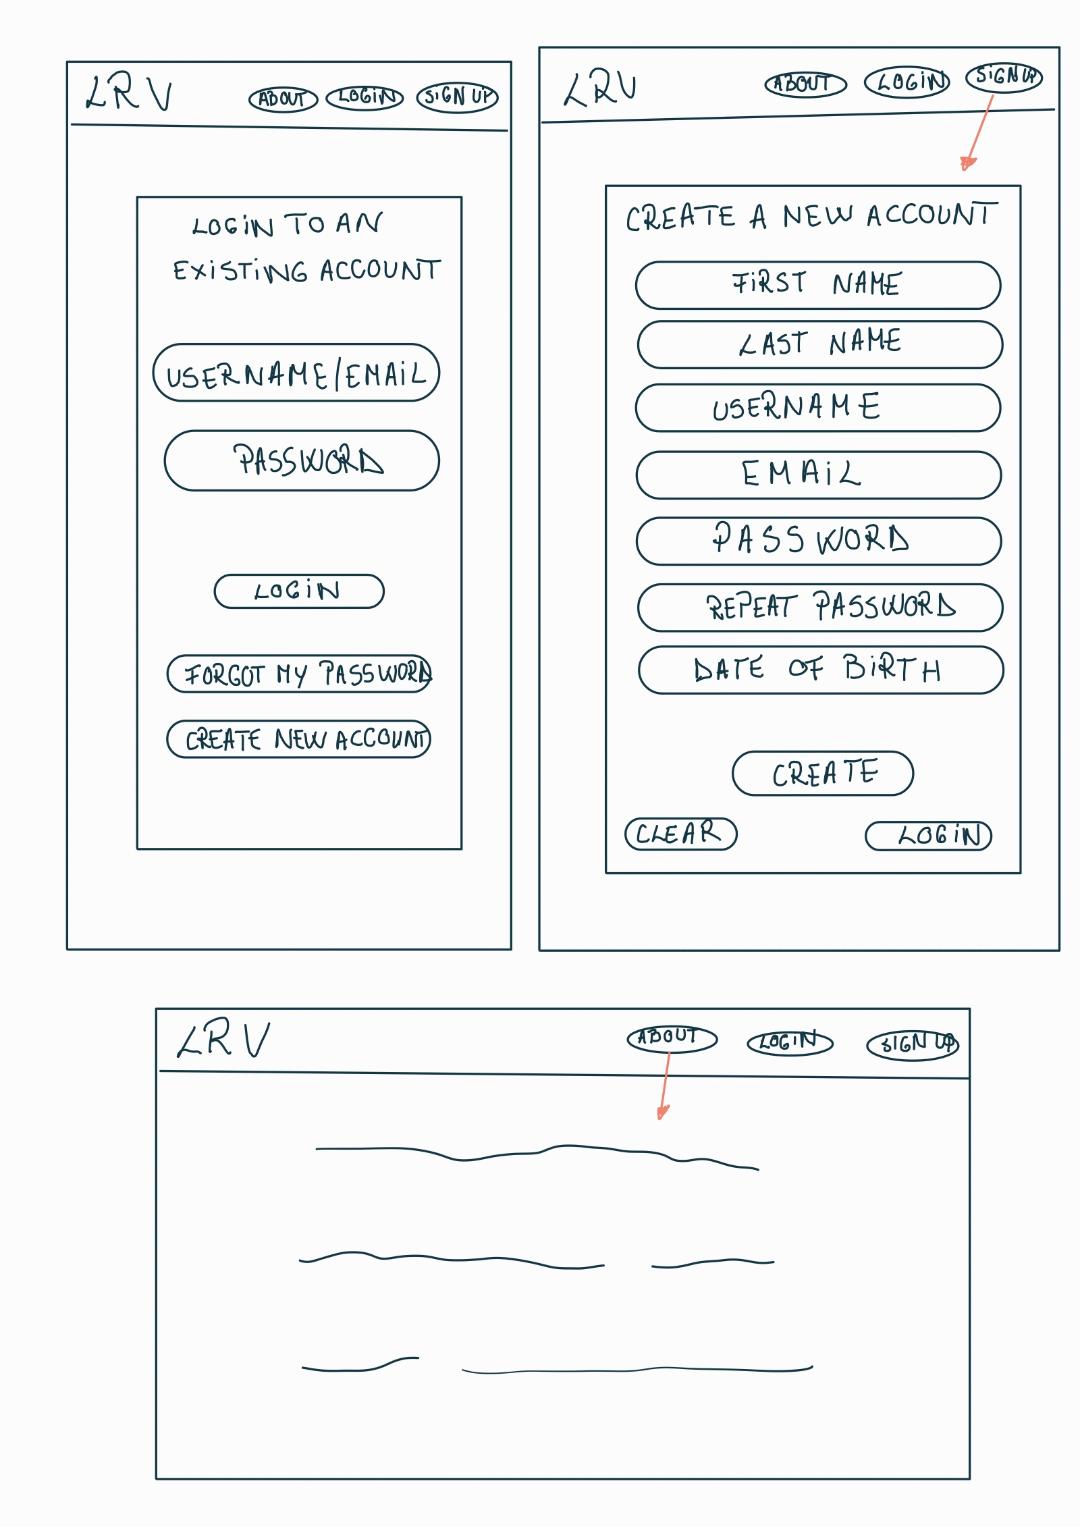 LRV
ABOUT LOGiN SiGN UP
LOGiN TO AN
EXiSTiNG ACCOUNT
USERNAME/EMAiL
PASSWORD
LOGiN
FORGOT MY PASSWORD
CREATE NEW ACCOUNT
LRV
ABOUT LOGiN SiGN UP
CREATE A NEW ACCOUNT
FiRST NAME
LAST NAME
USERNAME
EMAiL
PASSWORD
REPEAT PASSWORD
DATE OF BiRTH
CREATE
CLEAR LOGiN
LRV
ABOUT LOGiN SiGN UP